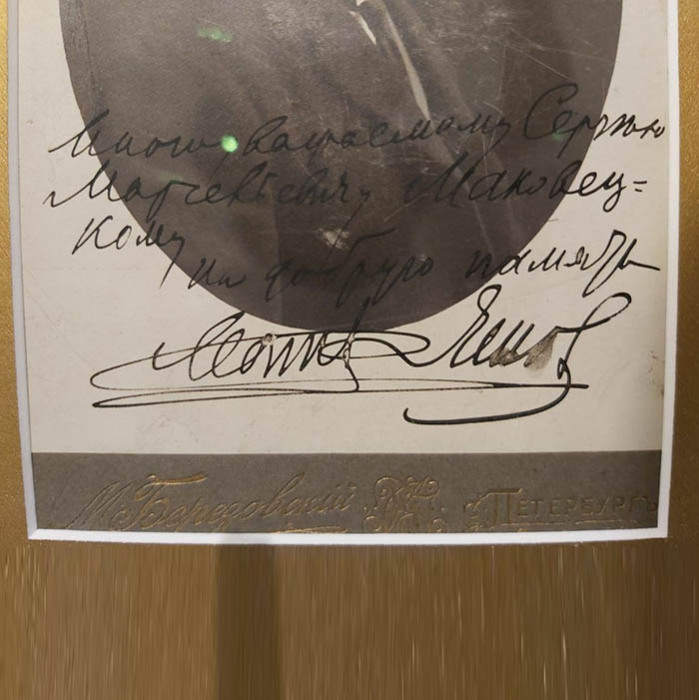 Многоуважаемому Сергею
Маркевичу Маковец=
кому
на добрую память
М. Березовский С. ПЕТЕРБУРГЪ